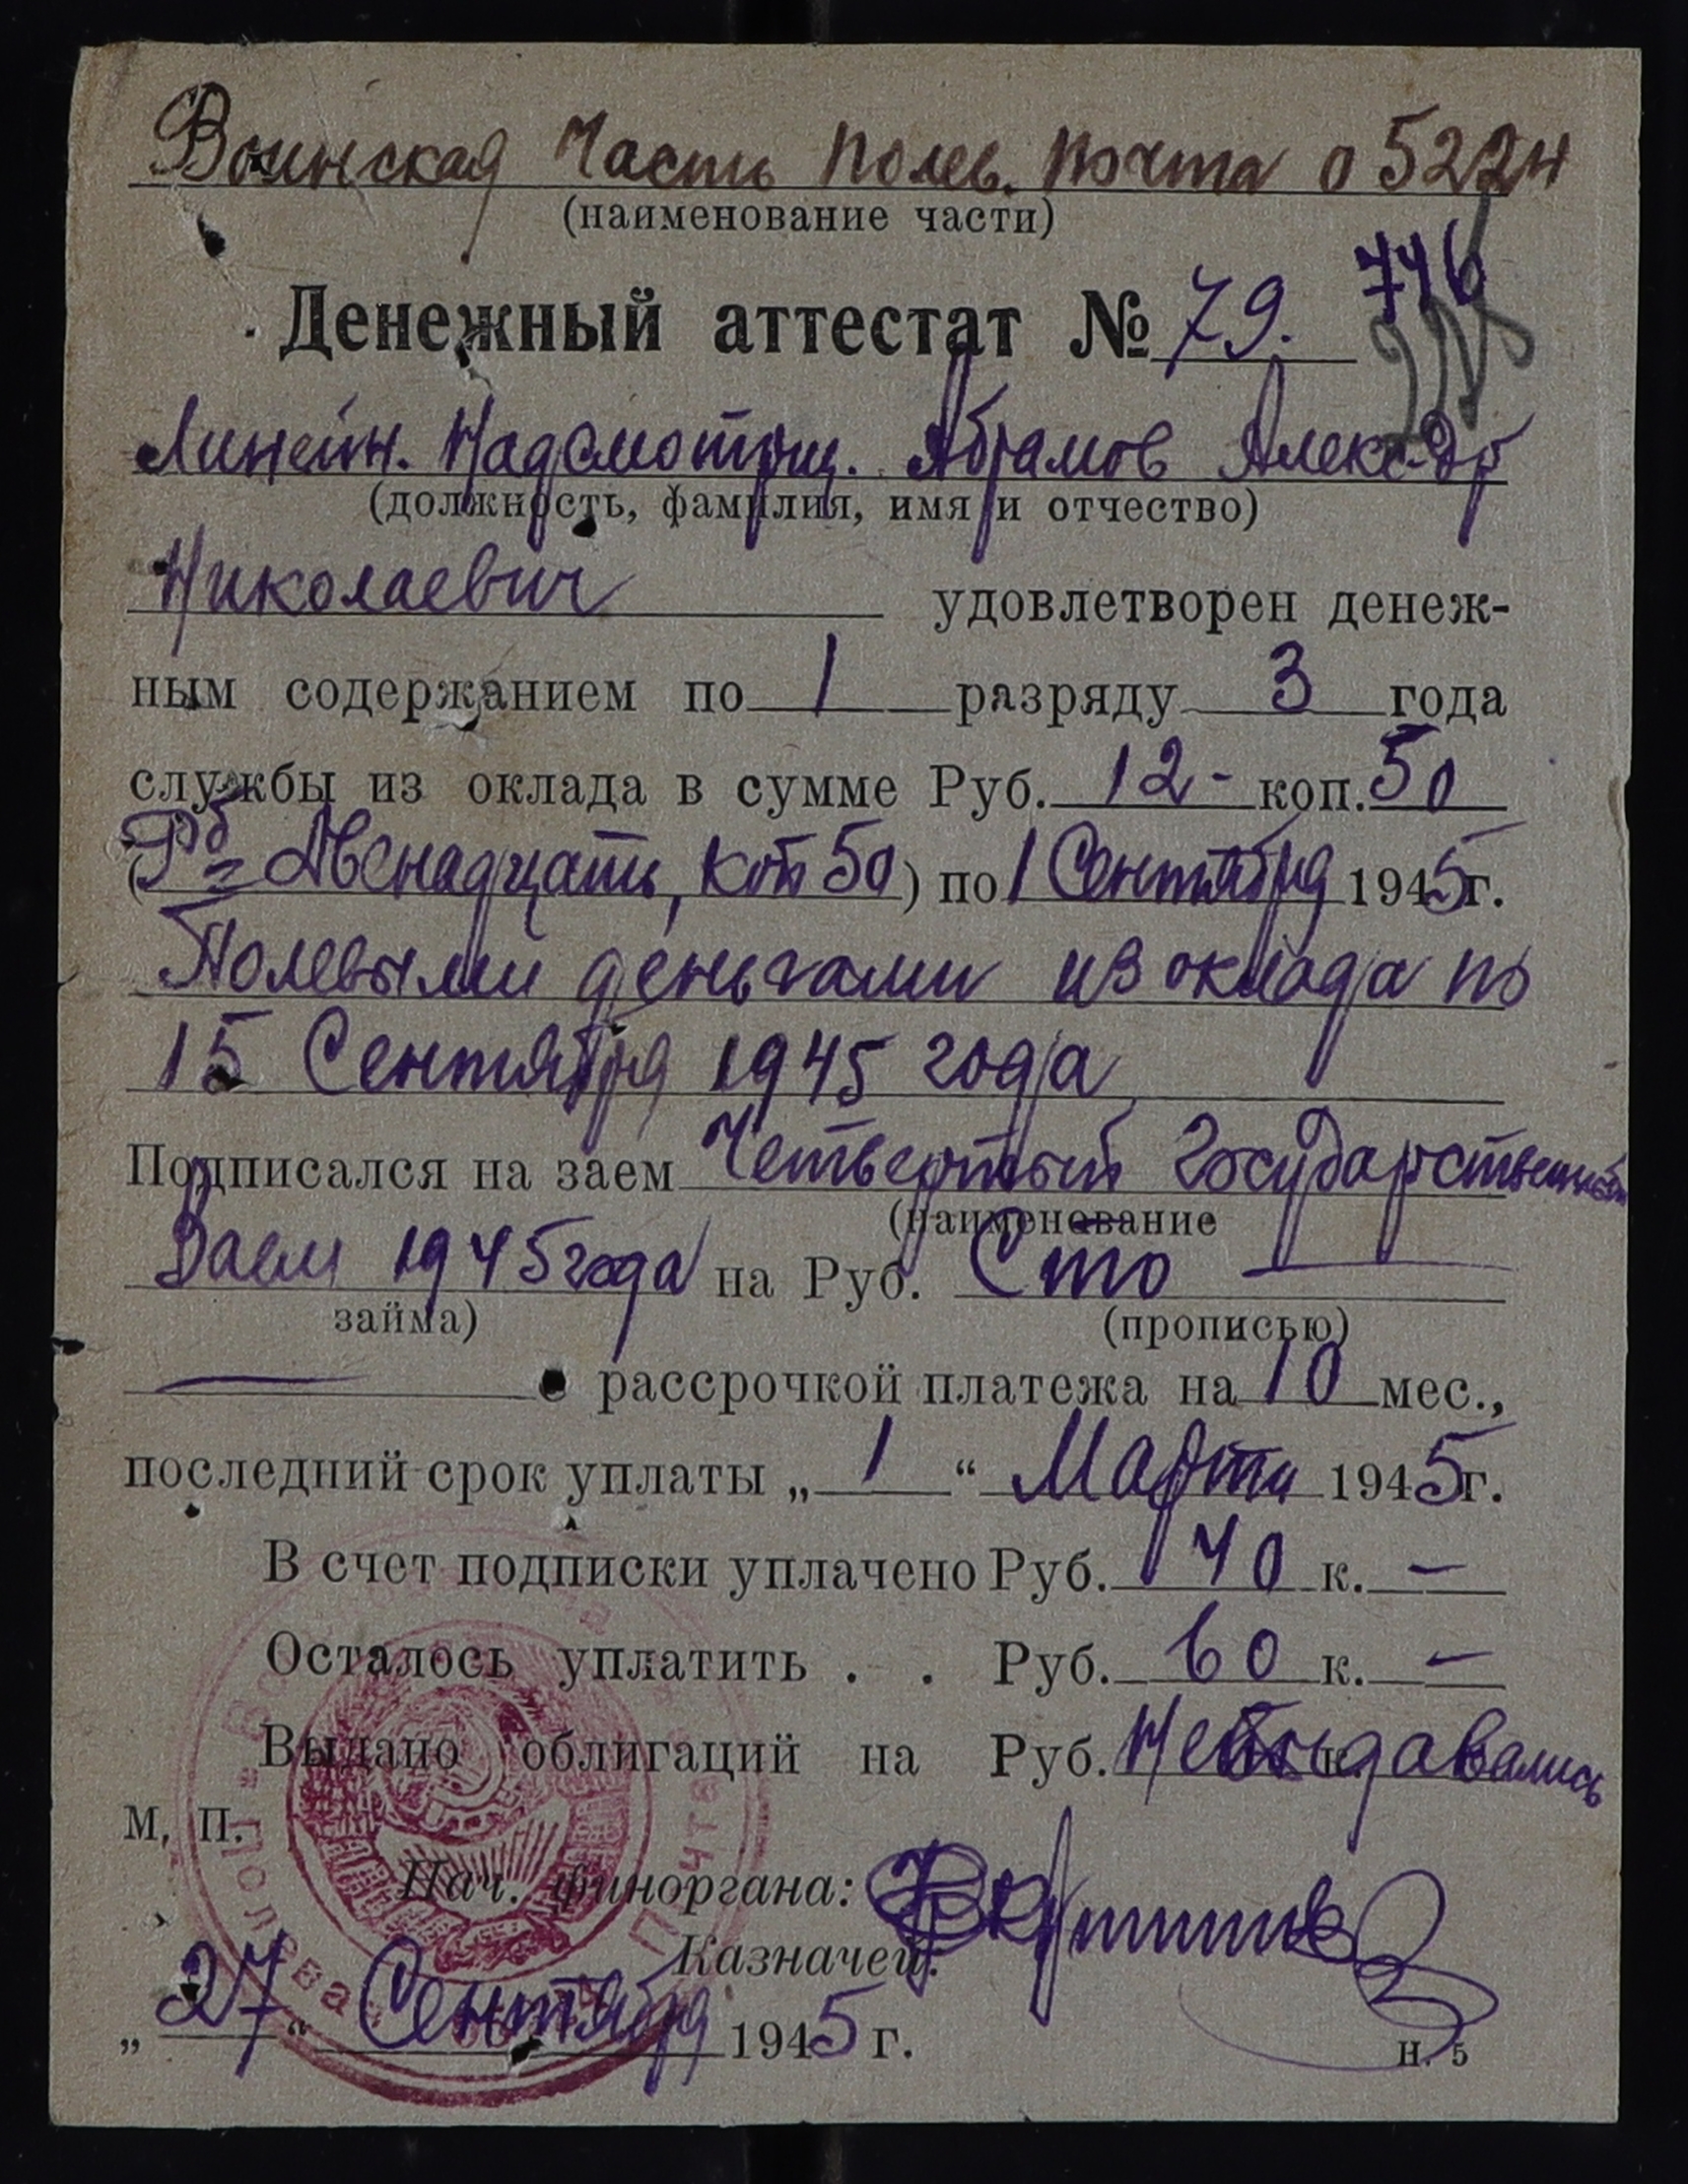 Воинская Часть Полев. Почта 05224
(наименование части)
746
Денежный аттестат № 79.
Линейн. Надсмотрщ. Абрамов Алекс-др
(должность, фамилия, имя и отчество)
Николаевич удовлетворен денеж-
ным содержанием по 1 разряду 3 года
службы из оклада в сумме Руб. 12- коп. 50
(Рб = Двенадцать, коп 50) по 1 Сентября 1945 г.
Полевыми деньгами из оклада по
15 Сентября 1945 года
Подписался на заем Четвертый Государственный
(наименование
Заем 1945 года на Руб. Сто —
займа) (прописью)
— с рассрочкой платежа на 10 мес.,
последний срок уплаты „ 1 “ Марта 1945 г.
В счет подписки уплачено Руб. 40 к. —
Осталось уплатить . . Руб. 60 к. —
Выдано облигаций на Руб. Невыдавались к.
М, П.
Нач. финоргана:
Казначей:
„ 27 “ Сентября 1945 г.
Н. 5
Полевая Почта